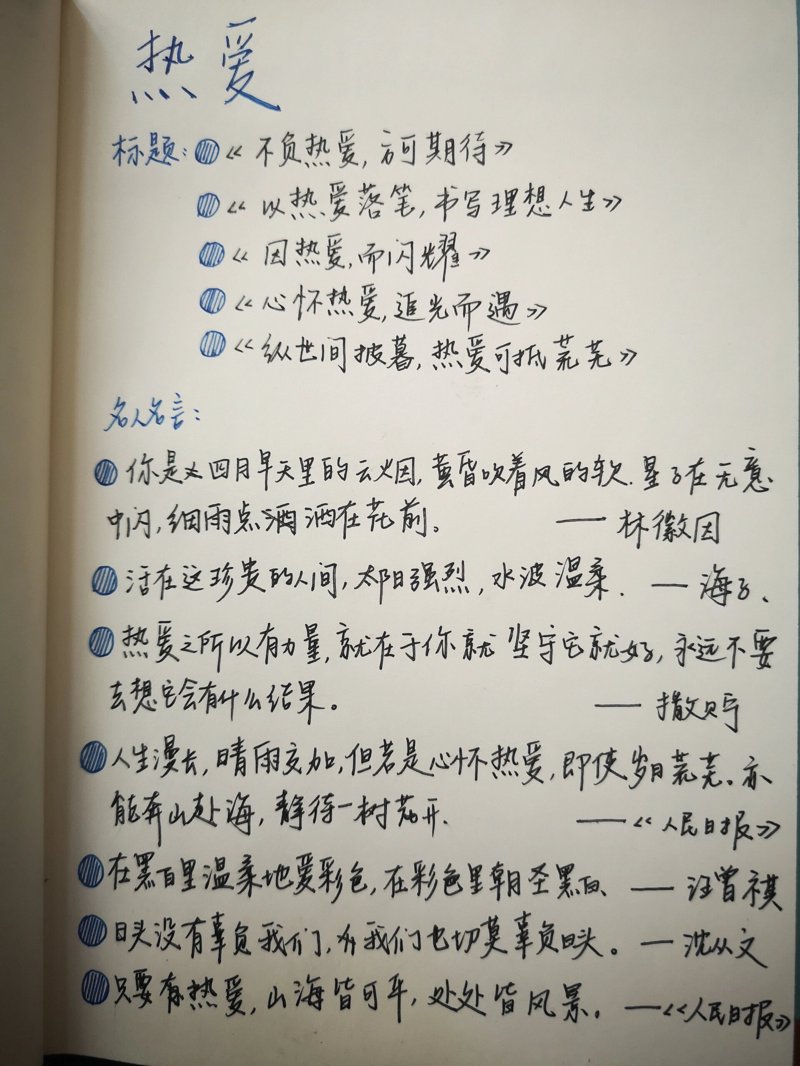 热爱
标题:《不负热爱,方可期待》
《以热爱落笔,书写理想人生》
《因热爱,而闪耀》
《心怀热爱,追光而遇》
《纵世间披暮,热爱可抵荒芜》
名人名言:
你是四月早天里的云烟,黄昏吹着风的软.星子在无意
中闪,细雨点洒洒在花前。——林徽因
活在这珍贵的人间,太阳强烈,水波温柔.——海子、
热爱之所以有力量,就在于你就坚守它就好,永远不要
去想它会有什么结果。——撒贝宁
人生漫长,晴雨交加,但若是心怀热爱,即使岁月荒芜。亦
能奔山赴海,静待一树花开.——《人民日报》
在黑白里温柔地爱彩色,在彩色里朝圣黑白、——汪曾祺
日头没有辜负我们,我们也切莫辜负日头。——沈从文
只要有热爱,山海皆可平,处处皆风景。——《人民日报》